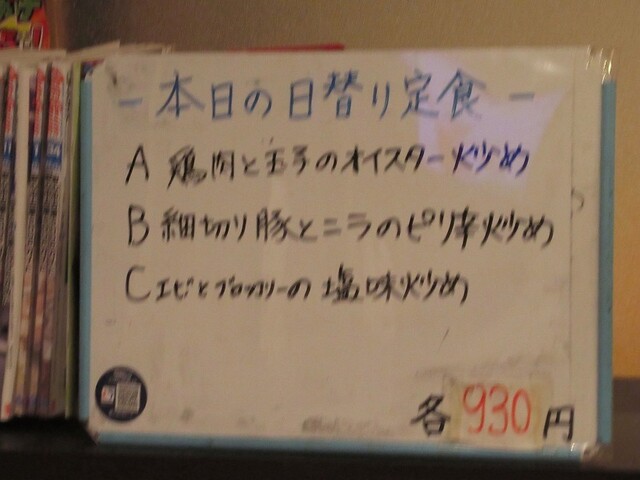 - 本日の日替り定食 -
A 鶏肉と玉子のオイスター炒め
B 細切り豚とニラのピリ辛炒め
C エビとブロッコリーの塩味炒め
各930円